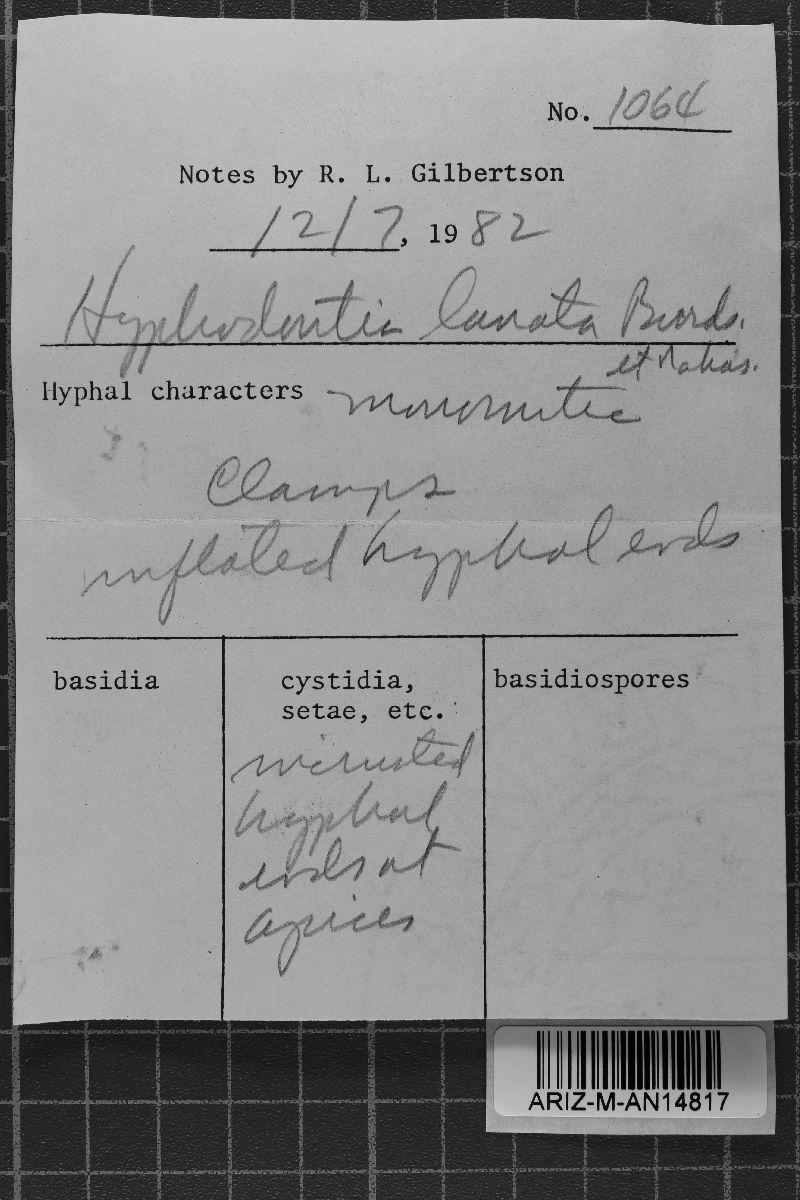 No. 1064
Notes by R. L. Gilbertson
12/7, 1982
Hyphodontia lanata Burds.
et Nakas.
Hyphal characters monomitic
Clamps
inflated hyphal ends
basidia
cystidia,
setae, etc.
incrusted
hyphal
ends at
apices
basidiospores
ARIZ-M-AN14817